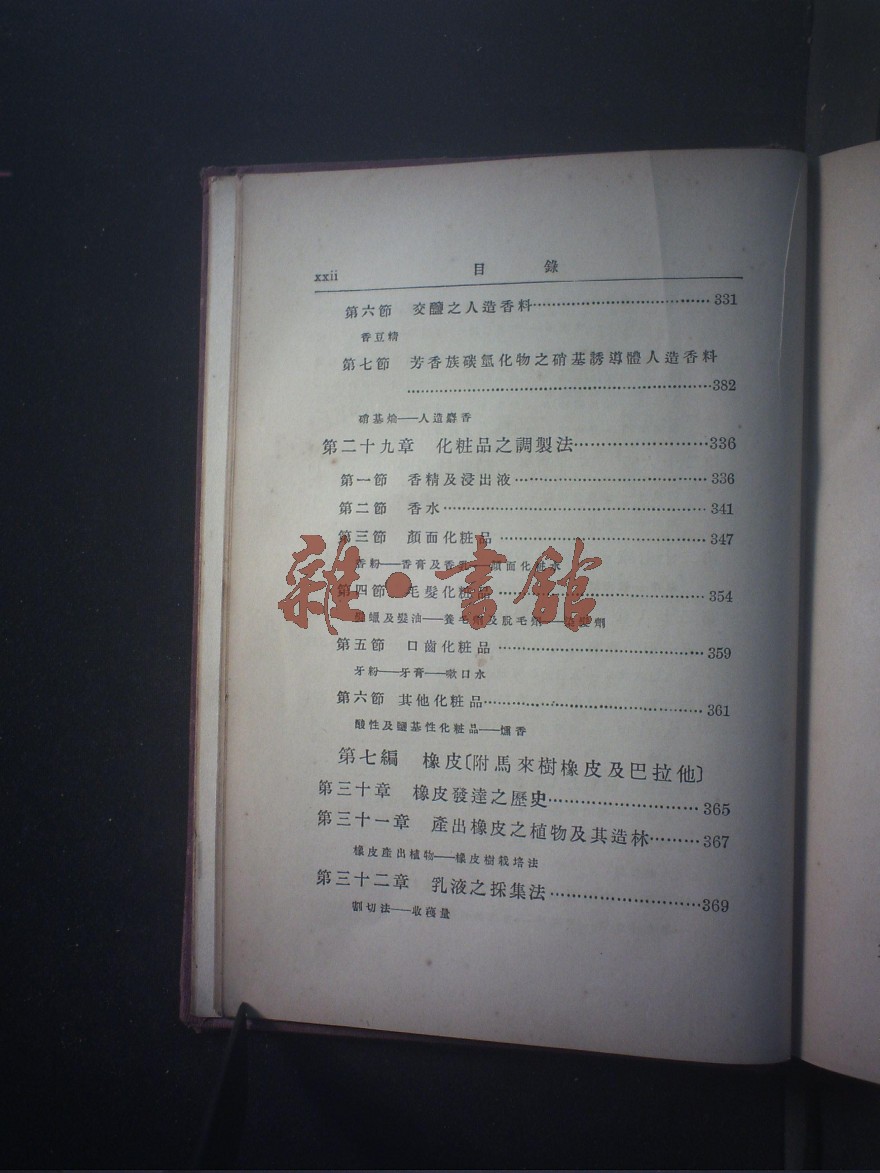 xxii 目 錄
第六節 交鹽之人造香料 331
香豆精
第七節 芳香族碳氫化物之硝基誘導體人造香料
382
硝基𤆬——人造麝香
第二十九章 化粧品之調製法 336
第一節 香精及浸出液 336
第二節 香水 341
第三節 顏面化粧品 347
香粉——香膏及香乳——顏面化粧水
第四節 毛髮化粧品 354
蠟及髮油——養毛劑及脫毛劑——染髮劑
第五節 口齒化粧品 359
牙粉——牙膏——嗽口水
第六節 其他化粧品 361
酸性及鹽基性化粧品——燻香
第七編 橡皮〔附馬來樹橡皮及巴拉他〕
第三十章 橡皮發達之歷史 365
第三十一章 產出橡皮之植物及其造林 367
橡皮產出植物——橡皮樹栽培法
第三十二章 乳液之採集法 369
割切法——收穫量
雜·書館